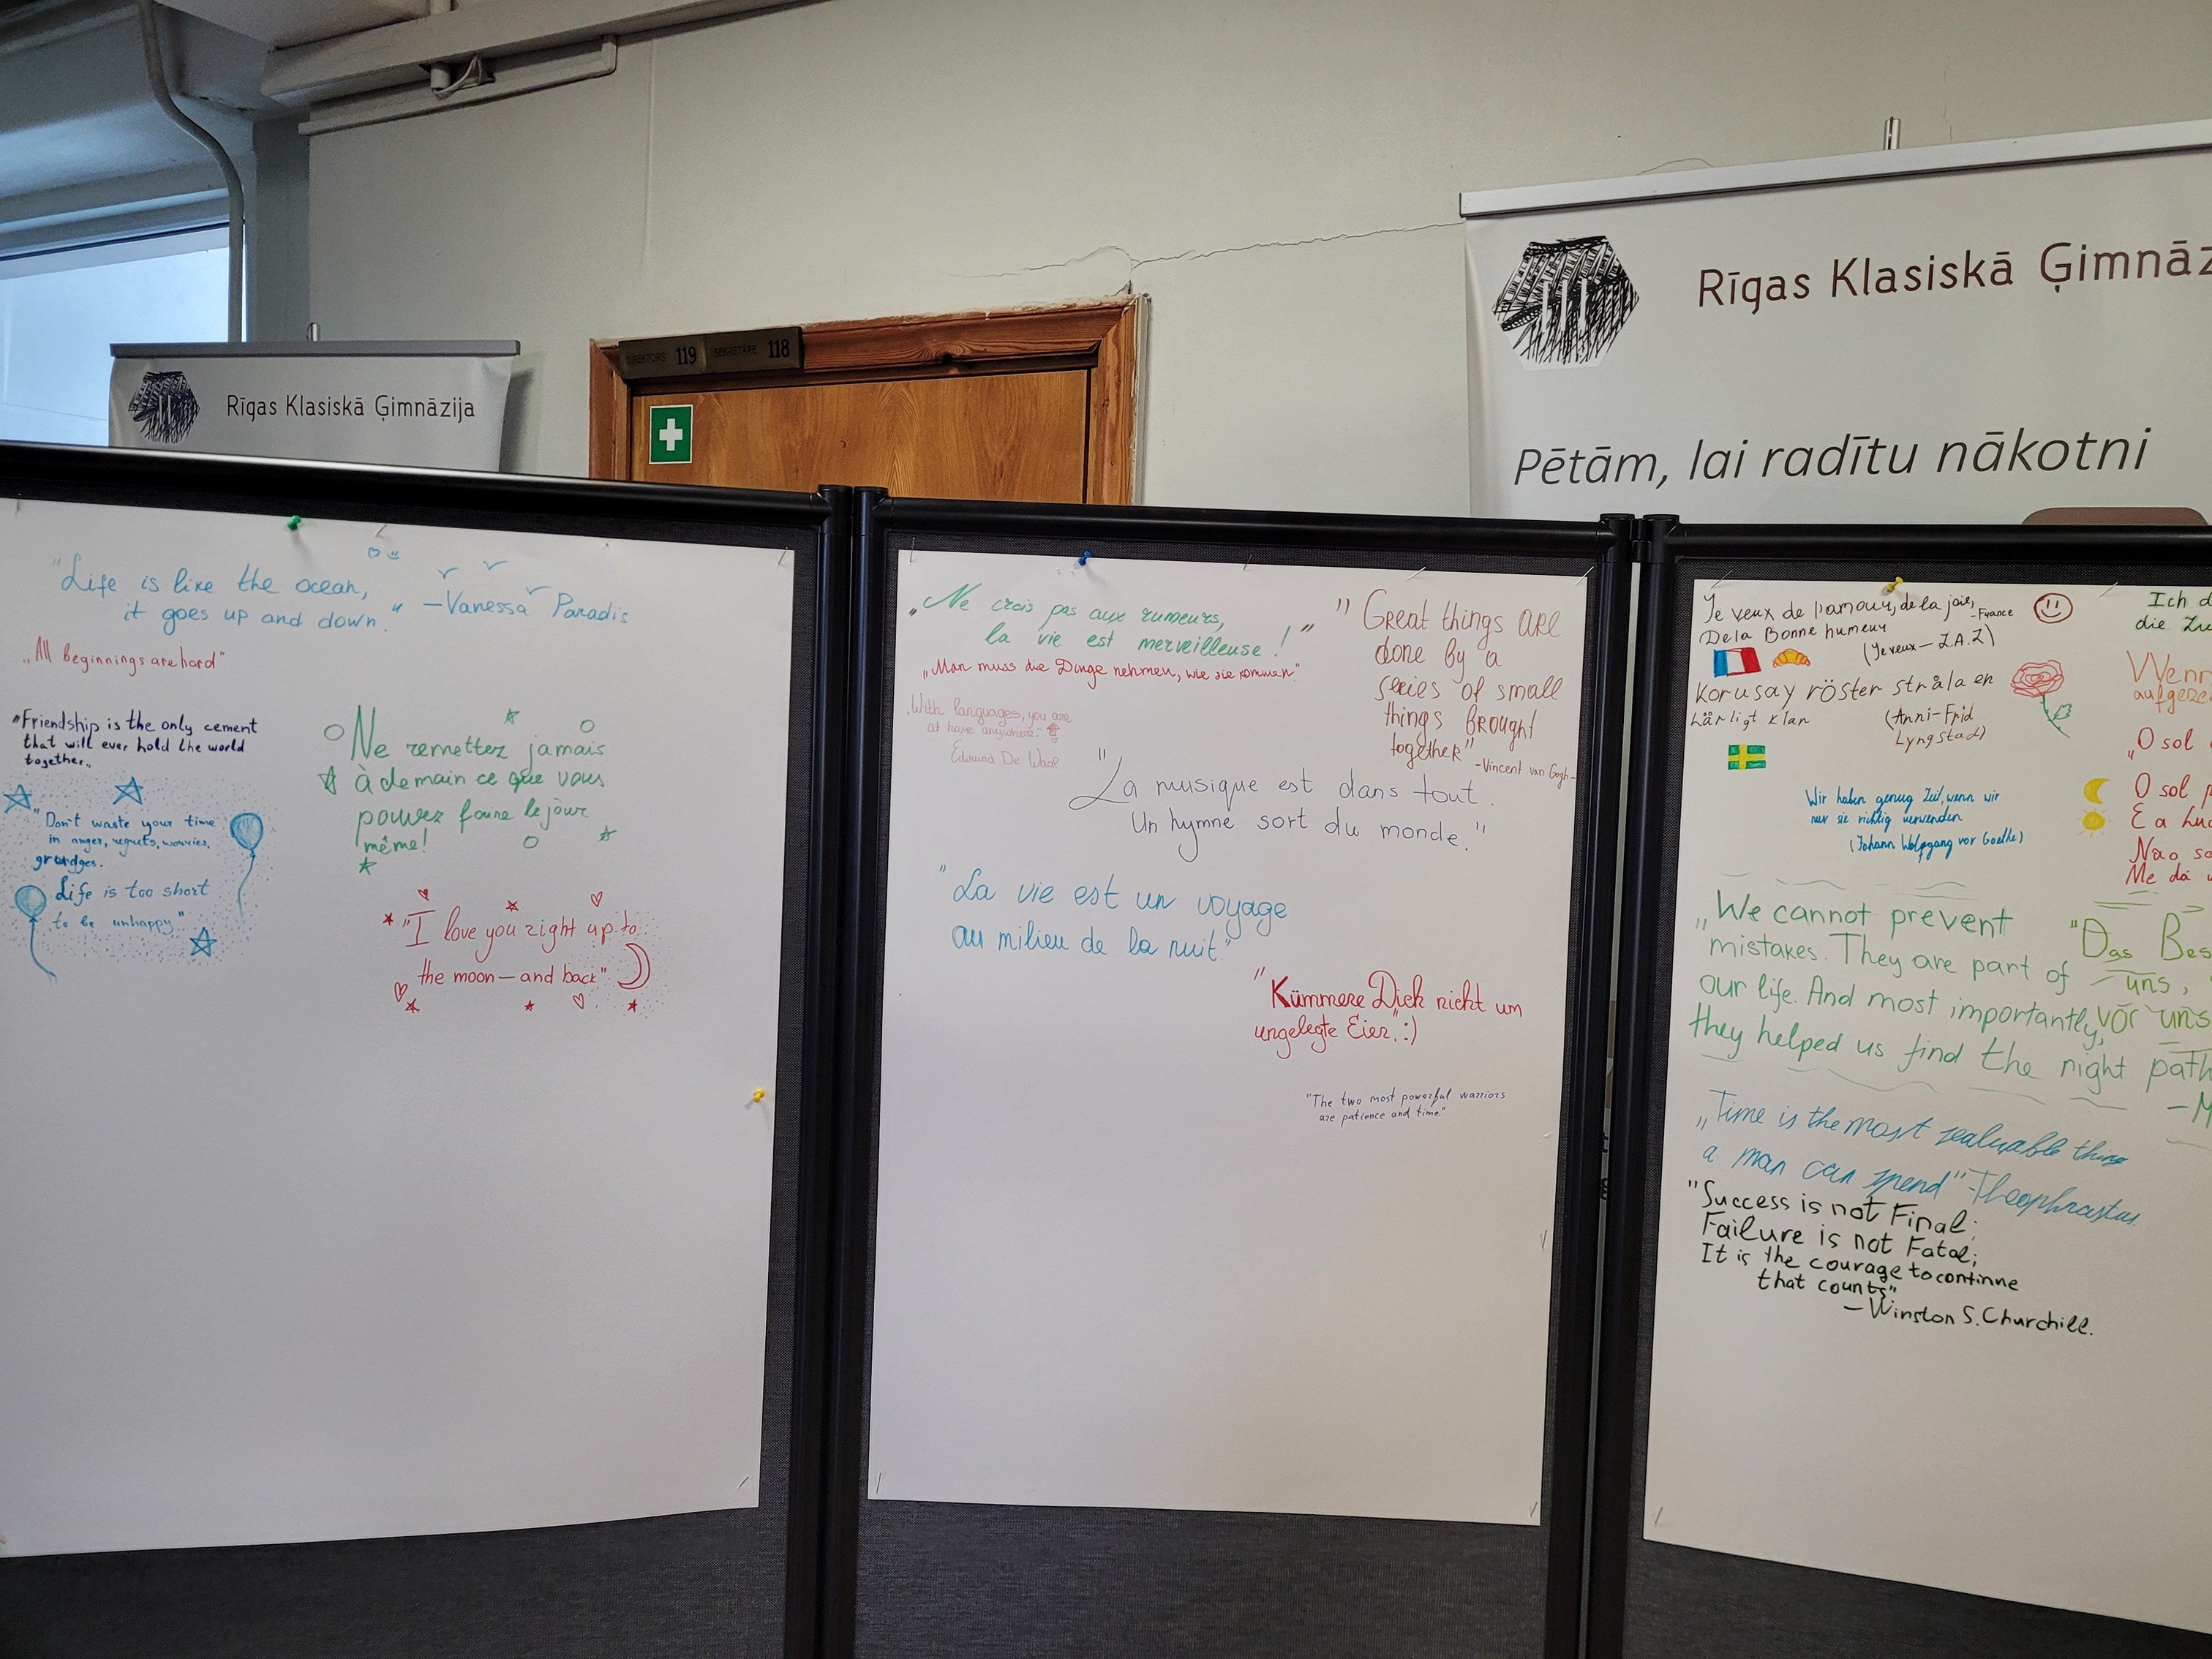 Rīgas Klasiskā Ģimnāzija
DIREKTORS 119 SEKRETĀRE 118
Rīgas Klasiskā Ģimnāz
Pētām, lai radītu nākotni
"Life is like the ocean,
it goes up and down." -Vanessa Paradis
„All beginnings are hard"
"Friendship is the only cement
that will ever hold the world
together„
"Don't waste your time
in anger, regrets, worries,
grudges.
Life is too short
to be unhappy"
Ne remettez jamais
à demain ce que vous
pouvez faire le jour
même!
"I love you right up to
the moon — and back"
„Ne crois pas aux rumeurs,
la vie est merveilleuse!"
„Man muss die Dinge nehmen, wie sie kommen"
„With languages, you are
at home anywhere."
Edmund De Waal
"Great things are
done by a
series of small
things brought
together"
-Vincent van Gogh-
"La musique est dans tout.
Un hymne sort du monde."
"La vie est un voyage
au milieu de la nuit"
"Kümmere Dich nicht um
ungelegte Eier." :)
"The two most powerful warriors
are patience and time."
Je veux de l'amour, de la joie, -France
De la Bonne humeur
(Je veux - Z.A.Z)
Korusay röster stråla en
härligt klan
(Anni-Frid
Lyngstad)
Wir haben genug Zeit, wenn wir
nur sie richtig verwenden
(Johann Wolfgang vor Goethe)
„We cannot prevent
mistakes. They are part of
our life. And most importantly,
they helped us find the right path
-M
„Time is the most realuable thing
a man can spend" -Theophrastus
"Success is not Final;
Failure is not Fatal;
It is the courage to continne
that counts"
-Winston S. Churchill.
Ich d
die Zu
Wenn
aufgeze
„O sol
O sol p
E a lua
Nao sa
Me dá
"Das Bes
uns,
vor uns